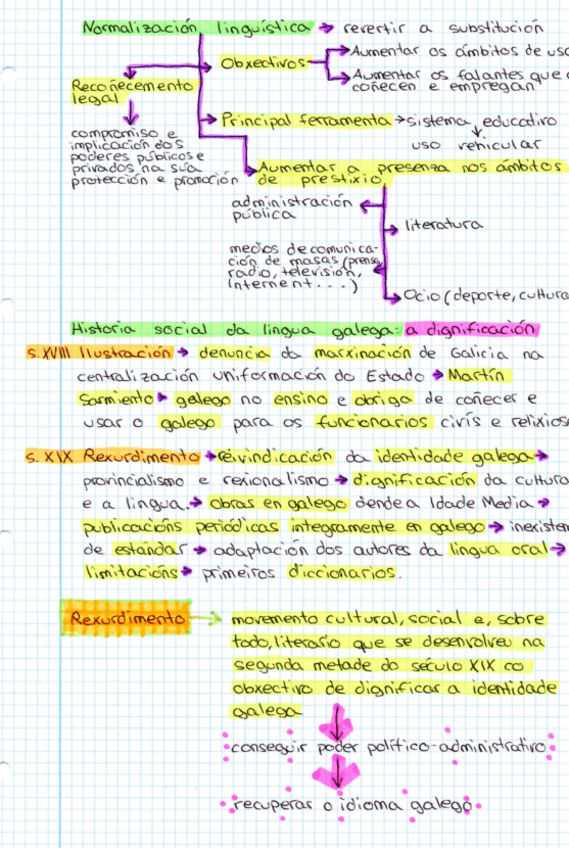 Normalización lingüística → revertir a substitución
Obxectivos → Aumentar os ámbitos de uso
→ Aumentar os falantes que o
coñecen e empregan
Recoñecemento
legal
compromiso e
implicación dos
poderes públicos e
privados na súa
protección e promoción
Principal ferramenta → sistema educativo
uso vehicular
Aumentar a presenza nos ámbitos
de prestixio
administración
pública
literatura
medios de comunica-
ción de masas (prensa,
radio, televisión,
Internent...)
Ocio (deporte, cultura
Historia social da lingua galega: a dignificación
s. XVIII Ilustración → denuncia da marxinación de Galicia na
centralización uniformación do Estado → Martín
Sarmiento → galego no ensino e obriga de coñecer e
usar o galego para os funcionarios civís e relixios
s. XIX Rexurdimento → reivindicación da identidade galega →
provincialismo e rexionalismo → dignificación da cultura
e a lingua. → obras en galego dende a Idade Media →
publicacións periódicas integramente en galego → inexisten
de estándar → adaptación dos autores da lingua oral →
limitacións → primeiros diccionarios.
Rexurdimento → movemento cultural, social e, sobre
todo, literario que se desenvolveu na
segunda metade do século XIX co
obxectivo de dignificar a identidade
galega
conseguir poder político-administrativo
recuperar o idioma galego